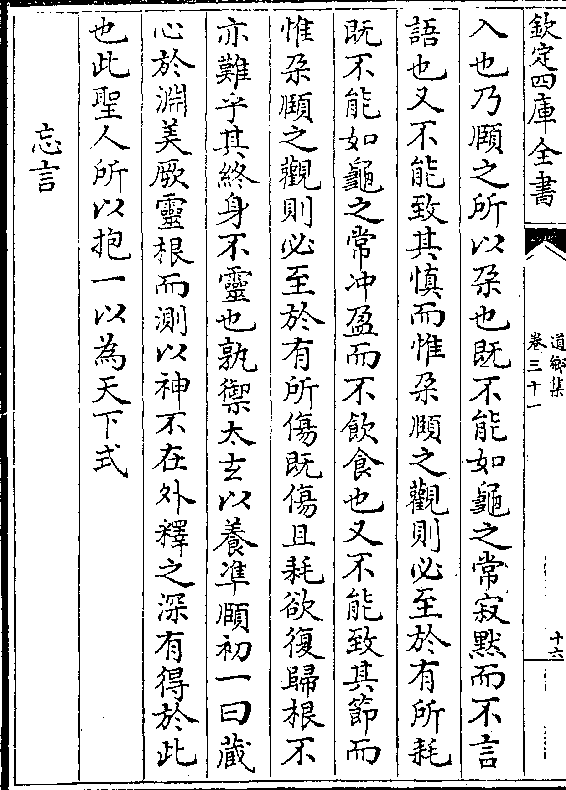 欽定四庫全書
道鄉集
卷三十一
十六
入也乃頤之所以朶也既不能如龜之常寂黙而不言
語也又不能致其慎而惟朶頤之觀則必至於有所耗
既不能如龜之常冲盈而不飲食也又不能致其節而
惟朶頤之觀則必至於有所傷既傷且耗欲復歸根不
亦難乎其終身不靈也孰禦太玄以養準頤初一曰藏
心於淵美厥靈根而測以神不在外釋之深有得於此
也此聖人所以抱一以為天下式
忘言